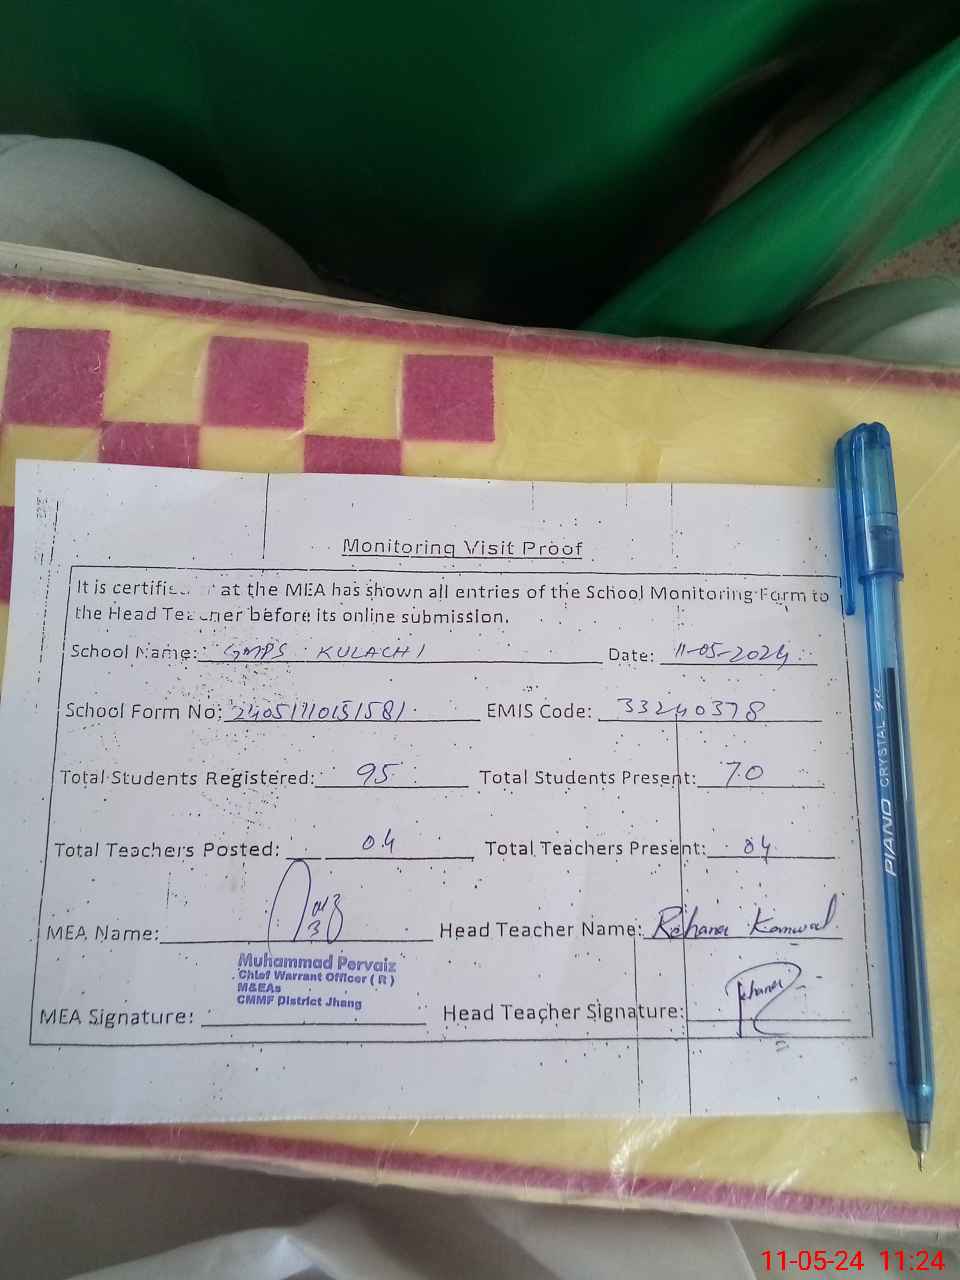 Monitoring Visit Proof
It is certifie at the MEA has shown all entries of the School Monitoring Form to
the Head Teacher before its online submission.
School Name: GMPS KULACHI Date: 11-05-2024
School Form No: EMIS Code: 33240378
Total Students Registered: 95 Total Students Present: 70
Total Teachers Posted: 04 Total Teachers Present: 04
MEA Name: Head Teacher Name: Rehana Kanwal
Muhammad Pervaiz
Chief Warrant Officer ( R )
M&EAs
CMMF District Jhang
MEA Signature: Head Teacher Signature: Rehana
PIANO CRYSTAL
11-05-24 11:24